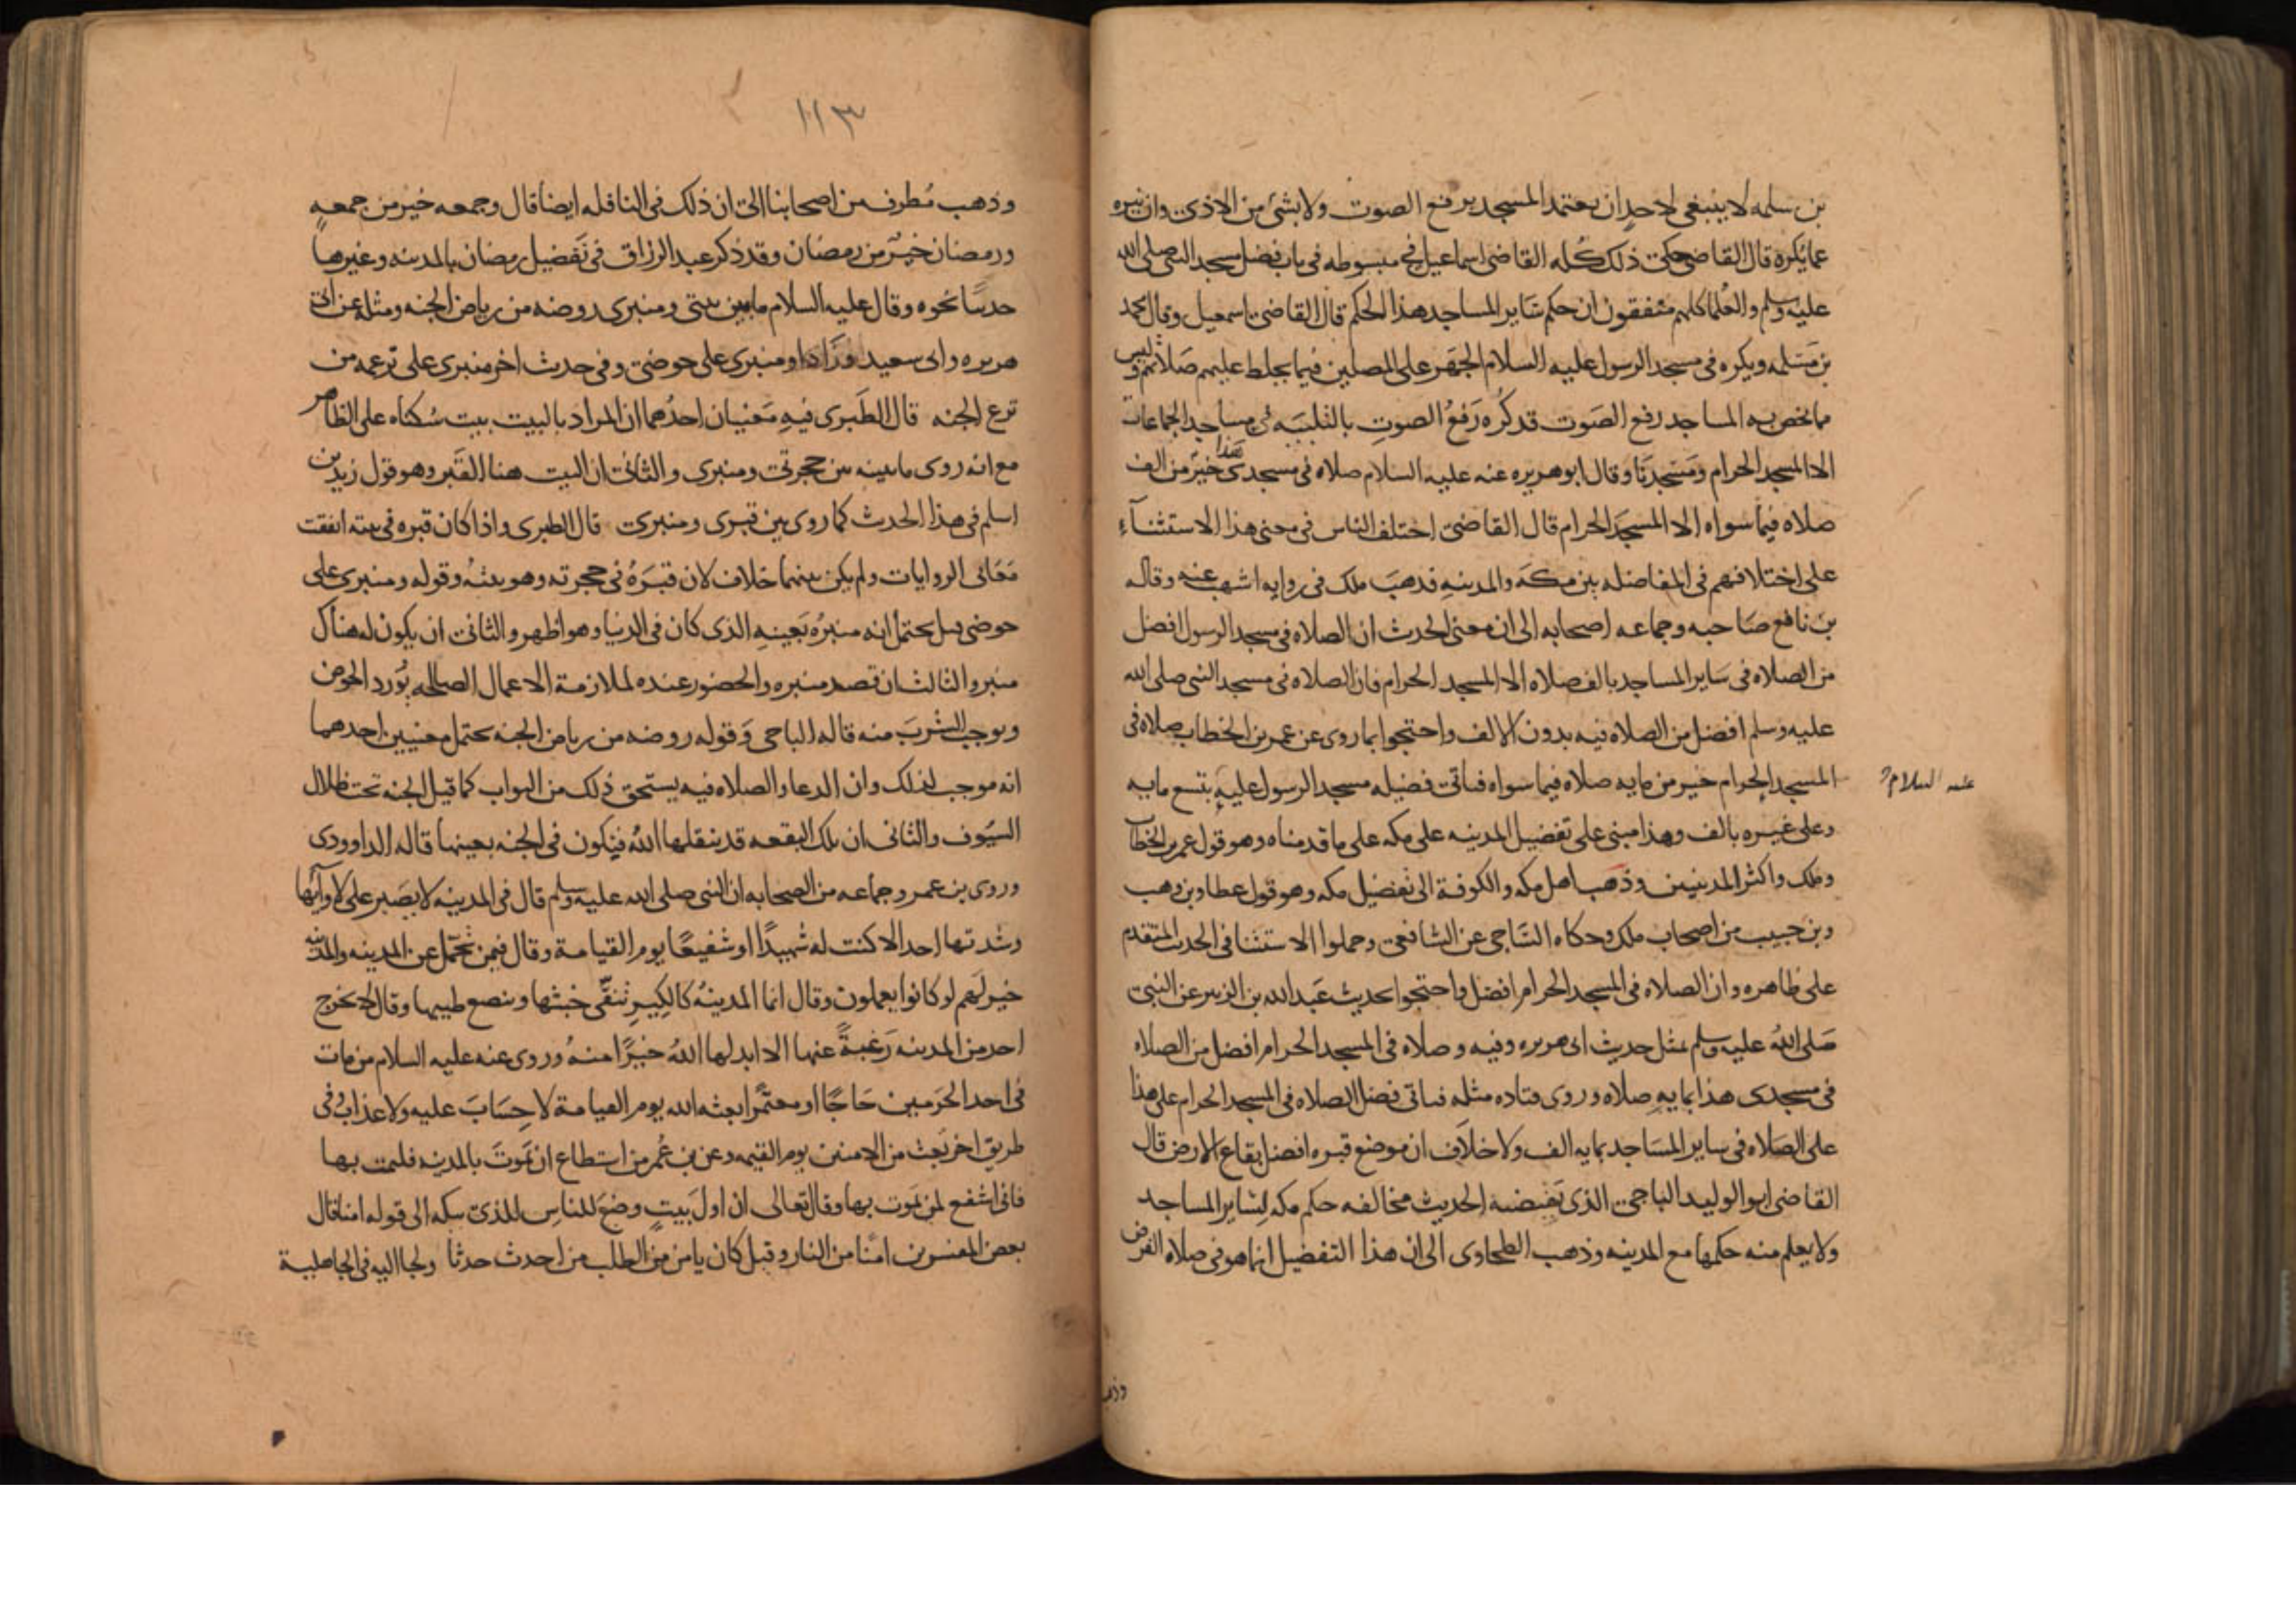 بن سلمه لا ينبغي لاحد ان يعتمد المسجد برفع الصوت ولا بشئ من الاذى وان ينزه
عما يكره قال القاضي حكى ذلك كله القاضي اسماعيل في مبسوطه في باب فضل مسجد النبي صلى الله
عليه وسلم والعلما كلهم متفقون ان حكم ساير المساجد هذا الحكم قال القاضي اسمعيل وقال محمد
بن مسلمه ويكره في مسجد الرسول عليه السلام الجهر على المصلين فيما يخلط عليهم صلاتهم وليس
مما يخص به المساجد رفع الصوت قد كره رفع الصوت بالتلبيه في مساجد الجماعات
الا المسجد الحرام ومسجدنا وقال ابو هريره عنه عليه السلام صلاه في مسجدى هذا خير من الف
صلاه فيما سواه الا المسجد الحرام قال القاضي اختلف الناس في معنى هذا الاستثنآء
على اختلافهم في المفاضله بين مكه والمدينه فذهب ملك في روايه اشهب عنه وقاله
بن نافع صاحبه وجماعه اصحابه الى ان معنى الحدث ان الصلاه في مسجد الرسول افضل
من الصلاه في ساير المساجد بالف صلاه الا المسجد الحرام فان الصلاه في مسجد النبي صلى الله
عليه وسلم افضل من الصلاه فيه بدون الالف واحتجوا بما روى عن عمر بن الخطاب صلاه في
المسجد الحرام خير من مايه صلاه فيما سواه فتاتى فضيله مسجد الرسول عليه بتسع مايه
عليه السلام
وعلى غيره بالف وهذا مبنى على تفضيل المدينه على مكه على ما قدمناه وهو قول عمر بن الخطاب
وملك واكثر المدنيين وذهب اهل مكه والكوفة الى تفضيل مكه وهو قول عطا وبن وهب
وبن حبيب من اصحاب ملك وحكاه الساجى عن الشافعى وحملوا الاستثنا فى الحدث المتقدم
على ظاهره وان الصلاه في المسجد الحرام افضل واحتجوا بحديث عبد الله بن الزبير عن النبى
صلى الله عليه وسلم بمثل حديث ابى هريره وفيه وصلاه في المسجد الحرام افضل من الصلاه
في مسجدى هذا بمايه صلاه وروى قتاده مثله فتاتى فضل الصلاه في المسجد الحرام على هذا
على الصلاه في ساير المساجد بمايه الف ولا خلاف ان موضع قبره افضل بقاع الارض قال
القاضي ابو الوليد الباجى الذى تقتضيه الحديث مخالفه حكم مكه لساير المساجد
ولا يعلم منه حكمها مع المدينه وذهب الطحاوى الى ان هذا التفضيل انما هو فى صلاه الفرض
وذهب
١١٣
وذهب مطرف من اصحابنا الى ان ذلك في النافله ايضا قال وجمعه خير من جمعه
ورمضان خير من رمضان وقد ذكر عبد الرزاق في تفضيل رمضان بالمدينه وغيرها
حديثا نحوه وقال عليه السلام ما بين بيتى ومنبرى روضه من رياض الجنه ومثله عن ابى
هريره وابى سعيد وزاد او منبرى على حوضى وفي حدث اخر منبرى على ترعه من
ترع الجنه قال الطبرى فيه معنيان احدهما ان المراد بالبيت بيت سكناه على الظاهر
مع انه روى ما يبينه بين حجرتى ومنبرى والثانى ان البيت هنا القبر وهو قول زيد بن
اسلم في هذا الحدث كما روى بين قبرى ومنبرى قال الطبرى واذا كان قبره في بيته اتفقت
معانى الروايات ولم يكن بينهما خلاف لان قبره فى حجرته وهو بيته وقوله ومنبرى على
حوضى قيل يحتمل انه منبره بعينه الذى كان في الدنيا وهو اظهر والثانى ان يكون له هناك
منبر والثالث ان قصد منبره والحضور عنده لملازمة الاعمال الصالحه يورد الحوض
ويوجب الشرب منه قاله الباجى وقوله روضه من رياض الجنه يحتمل معنيين احدهما
انه موجب لذلك وان الدعا والصلاه فيه يستحق ذلك من الثواب كما قيل الجنه تحت ظلال
السيوف والثانى ان تلك البقعه قد ينقلها الله فيكون في الجنه بعينها قاله الداوودى
وروى بن عمر وجماعه من الصحابه ان النبى صلى الله عليه وسلم قال في المدينه لا يصبر على لاوآئها
وشدتها احد الا كنت له شهيدا او شفيعا يوم القيامة وقال فيمن تحمل عن المدينه والمدينه
خير لهم لو كانوا يعلمون وقال انما المدينه كالكير تنفى خبثها وينصع طيبها وقال لا يخرج
احد من المدينه رغبة عنها الا ابدلها الله خيرا منه وروى عنه عليه السلام من مات
في احد الحرمين حاجا او معتمرا بعثه الله يوم القيامة لا حساب عليه ولا عذاب وفى
طريق اخر بعث من الامنين يوم القيمه وعن بن عمر من استطاع ان يموت بالمدينه فليمت بها
فانى اشفع لمن يموت بها وقال تعالى ان اول بيت وضع للناس للذى ببكه الى قوله امنا قال
بعض المفسرين امنا من النار وقيل كان يامن من الطلب من احدث حدثا ولجا اليه في الجاهلية